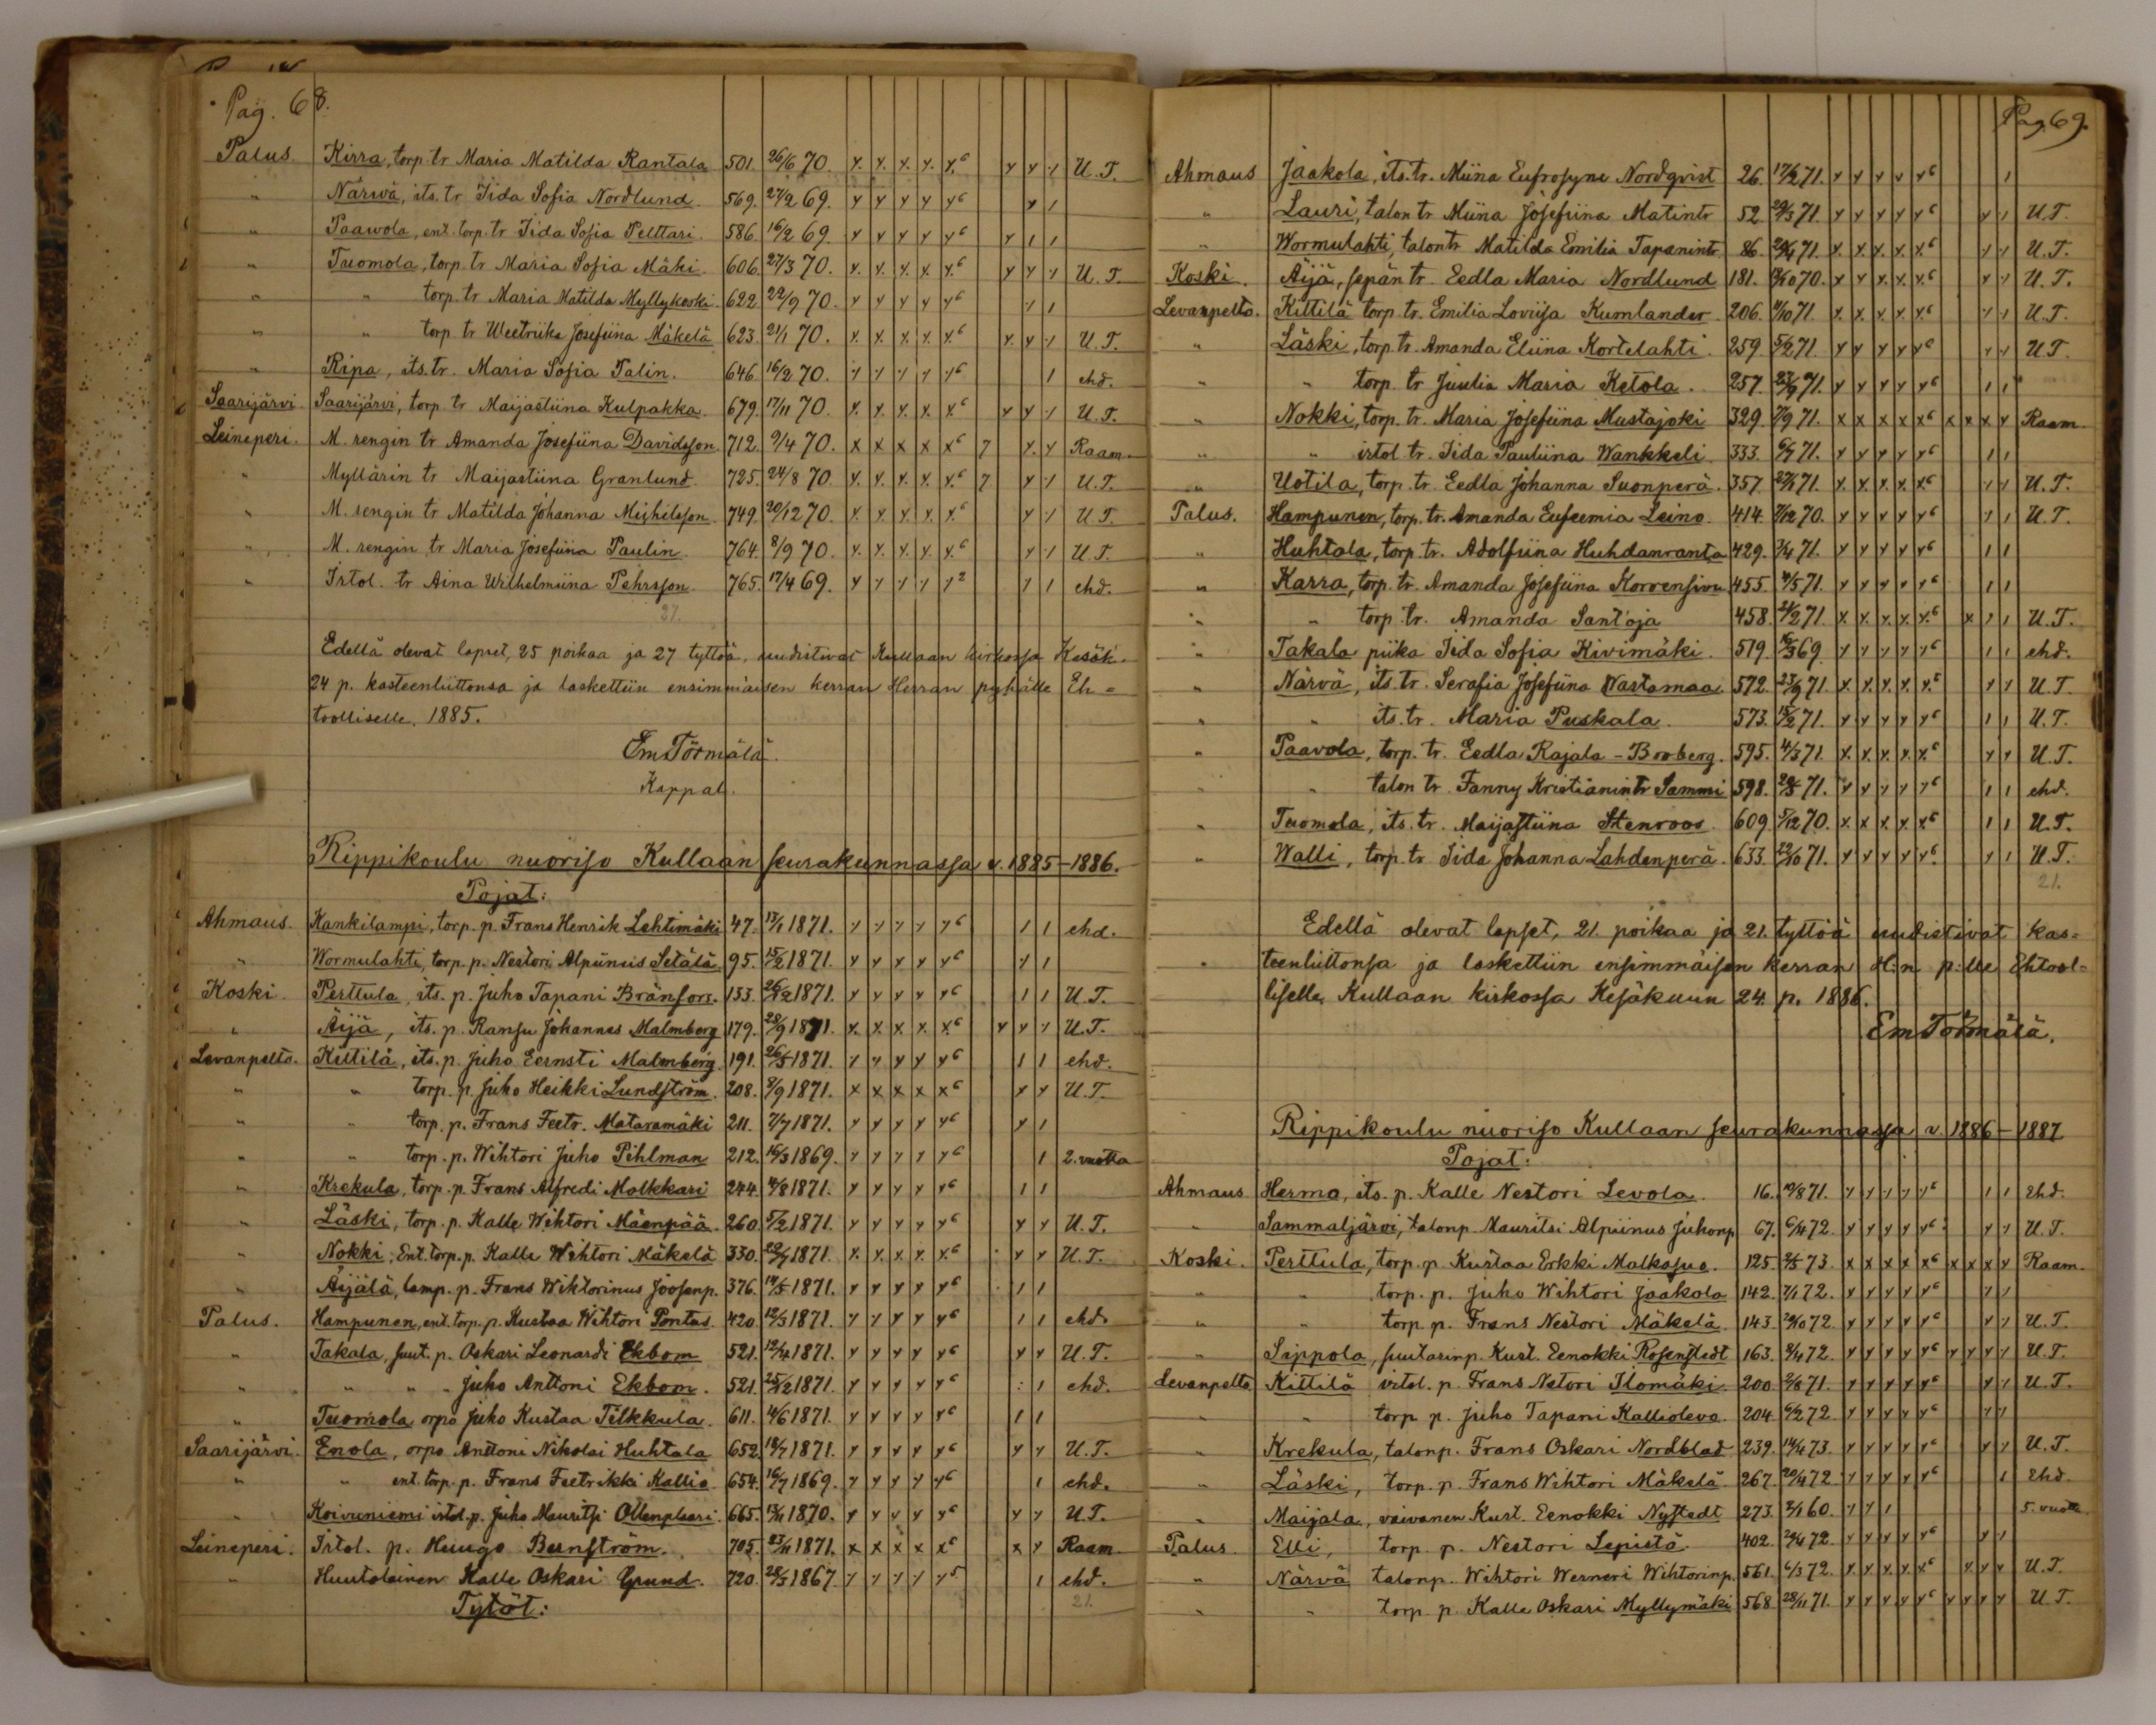 Pag. 68.
Palus. Kirra, torp. tr Maria Matilda Rantala 501. 26/6 70. x. x. x. x. x.6 x x 1 U.T.
" Närwä, its. tr Iida Sofia Nordlund. 569. 27/2 69. x x x x x6 x 1
" Paawola, ent. torp. tr Iida Sofia Pelttari. 586. 16/2 69. x x x x x6 x 1 1
" Tuomola, torp. tr Maria Sofia Mäki. 606. 27/3 70. x. x. x. x. x.6 x x x U.T.
" " torp. tr Maria Matilda Myllykoski. 622. 22/9 70. x x x x x6 1 1
" " torp. tr Weetriika Josefiina Mäkelä 623. 21/1 70. x. x. x. x. x.6 x. x 1 U.T.
" Ripa, its. tr. Maria Sofia Talin. 646. 16/2 70. 1 1 1 1 16 1 ehd.
Saarijärvi. Saarijärvi, torp. tr Maijastiina Kulpakka. 679. 17/11 70. x. x. x. x. x.6 x x 1 U.T.
Leineperi. M. rengin tr Amanda Josefiina Davidsson. 712. 9/4 70. x x x x x6 7 x. x Raam.
" Myllärin tr Maijastiina Granlund. 725. 24/8 70. x. x. x. x. x.6 7 x 1 U.T.
" M. rengin tr Matilda Johanna Michelsson. 749. 20/12 70. x. x. x. x. x.6 x 1 U.T.
" M. rengin tr Maria Josefiina Paulin. 764. 8/9 70. x. x. x. x. x.6 x 1 U.T.
" Irtol. tr Aina Wilhelmiina Pehrsson. 765. 17/4 69. x 1 1 1 12 1 1 ehd.
27.
Edellä olevat lapset, 25 poikaa ja 27 tyttöä, uudistivat Kullaan kirkossa Kesäk.
24 p. kasteenliittonsa ja laskettiin ensimmäisen kerran Herran pyhälle Eh=
toolliselle. 1885.
Em Törmälä.
Kappal.
Rippikoulu nuoriso Kullaan seurakunnassa v. 1885-1886.
Pojat:
Ahmaus. Kankilampi, torp. p. Frans Henrik Lehtimäki 47. 17/1 1871. 1 1 1 1 16 1 1 ehd.
" Wormulahti, torp. p. Nestori Alpiinus Setälä. 95. 15/2 1871. x x x x x6 x 1
Koski. Perttula, its. p. Juho Tapani Bränfors. 133. 26/12 1871. x x x x x6 1 1 U.T.
" Äijä, its. p. Ransu Johannes Malmberg 179. 28/9 1871. x. x. x. x. x.6 x x 1 U.T.
Levanpelto. Kittilä, its. p. Juho Eernsti Malmberg. 191. 26/5 1871. 1 x x x x6 1 1 ehd.
" " torp. p. Juho Heikki Lundström. 208. 8/9 1871. x x x x x6 x x U.T.
" " torp. p. Frans Feetr. Mataramäki 211. 7/7 1871. x x x x x6 x 1
" " torp. p. Wihtori Juho Pihlman 212. 16/3 1869. 1 1 1 1 16 1 2. vuotta
" Krekula, torp. p. Frans Alfredi Molkkari 244. 14/8 1871. x x x x x6 1 1
" Läski, torp. p. Kalle Wihtori Mäenpää. 260. 5/2 1871. x x x x x6 x x U.T.
" Nokki, Ent. torp. p. Kalle Wihtori Mäkelä 330. 22/7 1871. x. x. x. x. x.6 x x U.T.
" Äijälä, lamp. p. Frans Wiktorinus Joosenp. 376. 14/5 1871. x x x x x6 1 1
Palus. Hampunen, ent. torp. p. Kustaa Wihtori Pontus. 420. 12/3 1871. 1 1 1 1 16 1 1 ehd.
" Takala, suut. p. Oskari Leonardi Ekbom 521. 12/4 1871. x x x x x6 x x U.T.
" " " " Juho Anttoni Ekbom. 521. 25/12 1871. x x x x x6 1 1 ehd.
" Tuomola orpo Juho Kustaa Tilkkula. 611. 14/6 1871. x x x x x6 1 1
Saarijärvi. Enola, orpo Anttoni Nikolai Huhtala 652. 18/7 1871. x x x x x6 x x U.T.
" " ent. torp. p. Frans Feetrikki Kallio. 654. 16/7 1869. 1 x x x x6 1 ehd.
" Koivuniemi irtol. p. Juho Mauritsi Ollenplaari. 665. 13/11 1870. x x x x x6 x x U.T.
Leineperi. Irtol. p. Huugo Bernström. 705. 23/11 1871. x x x x x6 x x Raam.
" Huutolainen Kalle Oskari Grund. 720. 28/3 1867. 1 1 1 1 15 1 ehd.
Tytöt: 21.
Pag. 69.
Ahmaus Jaakola, its. tr. Miina Eufrosyne Nordqvist 26. 17/2 71. x x x x x6 1
" Lauri, talon tr Miina Josefiina Matintr 52. 29/3 71. x x x x x6 x 1 U.T.
" Wormulahti, talontr Matilda Emilia Tapanintr. 86. 29/4 71. x. x. x. x. x.6 x 1 U.T.
Koski. Äijä, sepän tr. Eedla Maria Nordlund 181. 9/10 70. x. x. x. x. x.6 x 1 U.T.
Levanpelto. Kittilä torp. tr. Emilia Loviisa Kumlander. 206. 11/10 71. x. x. x. x. x.6 1 1 U.T.
" Läski, torp. tr. Amanda Eliina Kortelahti. 259. 5/2 71. x x x x x6 x 1 U.T.
" " torp. tr Juulia Maria Ketola. 257. 27/9 71. x x x x x6 1 1
" Nokki, torp. tr. Maria Josefiina Mustajoki 329. 7/9 71. x x x x x6 x x x x Raam.
" " irtol. tr. Iida Pauliina Wankkeli 333. 6/7 71. x x x x x6 1 1
" Uotila, torp. tr. Eedla Johanna Suonperä. 357. 27/1 71. x. x. x. x. x.6 1 1 U.T.
Palus. Hampunen, torp. tr. Amanda Eufeemia Leino. 414. 7/12 70. x x x x x6 x 1 U.T.
" Huhtala, torp. tr. Adolfiina Huhdanranta 429. 7/4 71. x x x x x6 1 1
" Karra, torp. tr. Amanda Josefiina Korvensivu 455. 4/5 71. x x x x x6 1 1
" " torp. tr. Amanda Sant'oja 458. 24/2 71. x. x. x. x. x.6 x 1 1 U.T.
" Takala piika Iida Sofia Kivimäki. 519. 16/3 69. 1 1 1 1 16 1 1 ehd.
" Närvä, its. tr. Serafia Josefiina Wastamaa. 572. 23/9 71. x. x. x. x. x.6 x 1 U.T.
" " its. tr. Maria Puskala. 573. 15/2 71. x x x x x6 1 1 U.T.
" Paavola, torp. tr. Eedla Rajala-Broberg. 595. 4/3 71. x. x. x. x. x.6 x x U.T.
" " talon tr. Fanny Kristianintr Sammi 598. 29/5 71. 1 1 1 1 16 1 1 ehd.
" Tuomola, its. tr. Maijastiina Stenroos. 609. 5/12 70. x. x. x. x. x.6 1 1 U.T.
" Walli, torp. tr Iida Johanna Lahdenperä. 633. 22/10 71. x x x x x6 x 1 U.T.
21.
Edellä olevat lapset, 21. poikaa ja 21. tyttöä uudistivat kas=
teenliittonsa ja laskettiin ensimmäisen kerran H:n p:lle Ehtool=
liselle, Kullaan kirkossa Kesäkuun 24. p. 1886.
Em Törmälä.
Rippikoulu nuoriso Kullaan seurakunnassa v. 1886-1887
Pojat:
Ahmaus Herma, its. p. Kalle Nestori Levola. 16. 19/8 71. 1 1 1 1 16 1 1 Ehd.
" Sammaljärvi, talonp. Mauritsi Alpiinus Juhonp. 67. 6/11 72. x x x x x6 x 1 U.T.
Koski. Perttula, torp. p. Kustaa Erkki Malkasuo. 125. 2/5 73. x x x x x6 x x x x Raam.
" " torp. p. Juho Wihtori Jaakola 142. 7/1 72. x x x x x6 1 1
" " torp. p. Frans Nestori Mäkelä. 143. 29/10 72. x x x x x6 x 1 U.T.
" Sippola, suutarinp. Kust. Eenokki Rosenstedt 163. 8/4 72. x x x x x6 x x x 1 U.T.
Levanpelto Kittilä irtol. p. Frans Nestori Ilomäki. 200. 2/8 71. x x x x x6 x 1 U.T.
" " torp. p. Juho Tapani Kallioleva. 204. 6/2 72. x x x x x6 1 1
" Krekula, talonp. Frans Oskari Nordblad 239. 14/4 73. x x x x x6 x 1 U.T.
" Läski, torp. p. Frans Wihtori Mäkelä. 267. 20/4 72. 1 1 1 1 16 1 Ehd.
" Maijala, vaivanen Kust. Eenokki Nystedt 273. 3/1 60. 1 1 1 5. vuotta
Palus Elli, torp. p. Nestori Lepistä. 402. 29/4 72. x x x x x6 x 1
" Närvä talonp. Wihtori Werneri Wihtorinp. 561. 6/3 72. x. x. x. x. x6 x x x U.T.
" " torp. p. Kalle Oskari Myllymäki 568. 28/11 71. x x x x x6 x x x x U.T.